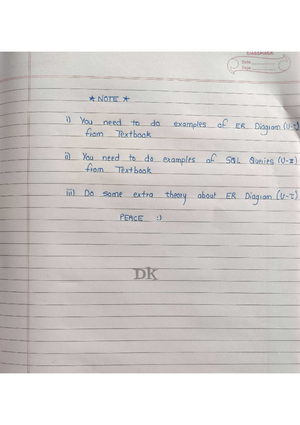 classmate
Date
Page
★ NOTE ★
i) You need to do examples of ER Diagram (U-I)
from Textbook
ii) You need to do examples of SQL Queries (U-II)
from Textbook
iii) Do some extra theory about ER Diagram (U-I)
PEACE :)
Dk